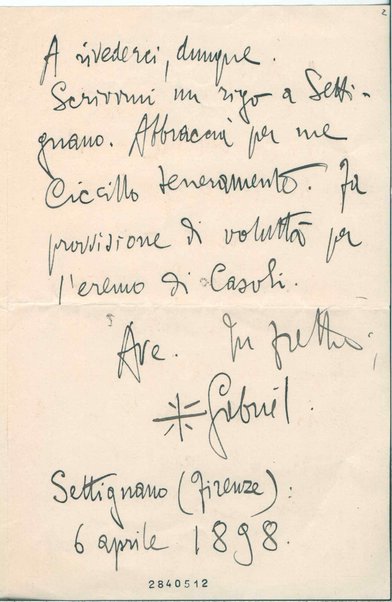 2
A rivederci, dunque.
Scrivimi un rigo a Setti-
gnano. Abbraccia per me
Ciccillo teneramente. Fa
provvisione di voluttà per
l'eremo di Casoli.
Ave. In fretta,
Gabriel.
Settignano (Firenze):
6 aprile 1898.
2840512